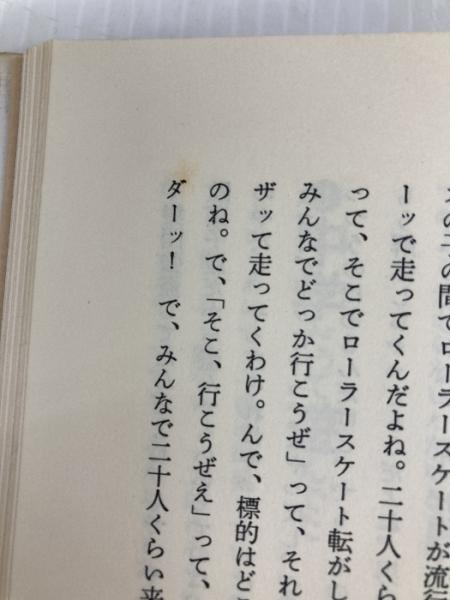 の子の間でローラースケートが流行
ーッで走ってくんだよね。二十人くら
って、そこでローラースケート転がし
みんなでどっか行こうぜ」って、それ
ザッて走ってくわけ。んで、標的はどこ
のね。で、「そこ、行こうぜえ」って、
ダーッ！　で、みんなで二十人くらい来